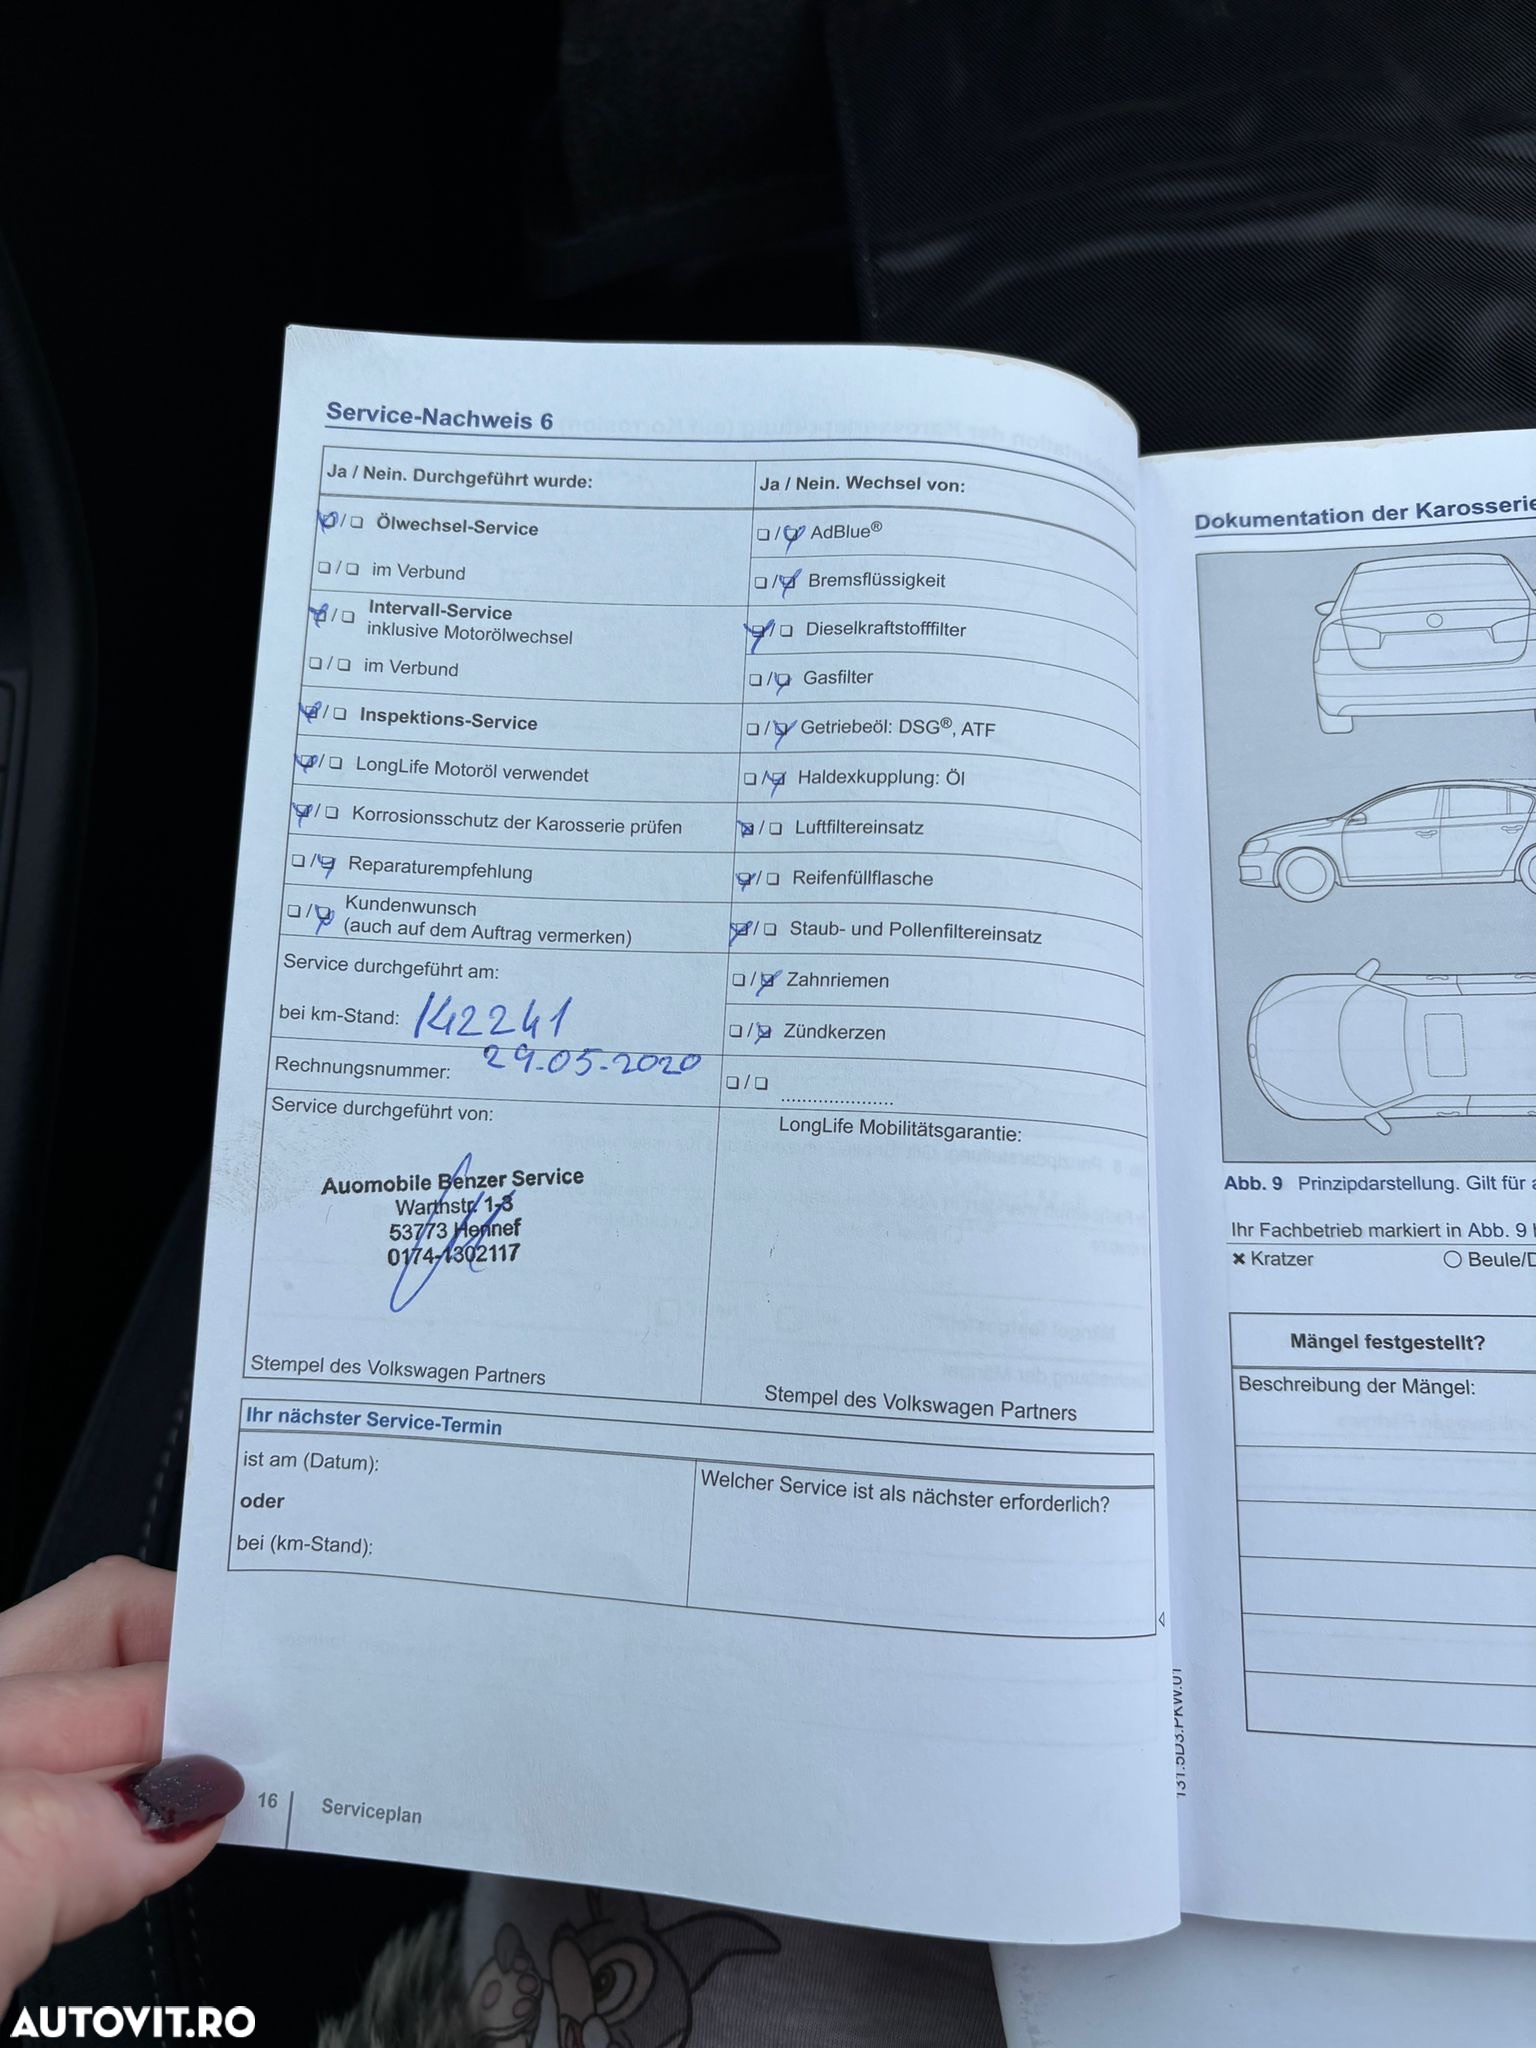 Service-Nachweis 6
Ja / Nein. Durchgeführt wurde:
Ölwechsel-Service
im Verbund
Intervall-Service
inklusive Motorölwechsel
im Verbund
Inspektions-Service
LongLife Motoröl verwendet
Korrosionsschutz der Karosserie prüfen
Reparaturempfehlung
Kundenwunsch
(auch auf dem Auftrag vermerken)
Service durchgeführt am:
bei km-Stand: 142241
29.05.2020
Rechnungsnummer:
Service durchgeführt von:
Auomobile Benzer Service
Warthstr. 1-3
53773 Hennef
0174-1302117
Stempel des Volkswagen Partners
Ja / Nein. Wechsel von:
AdBlue®
Bremsflüssigkeit
Dieselkraftstofffilter
Gasfilter
Getriebeöl: DSG®, ATF
Haldexkupplung: Öl
Luftfiltereinsatz
Reifenfüllflasche
Staub- und Pollenfiltereinsatz
Zahnriemen
Zündkerzen
LongLife Mobilitätsgarantie:
Stempel des Volkswagen Partners
Ihr nächster Service-Termin
ist am (Datum):
oder
bei (km-Stand):
Welcher Service ist als nächster erforderlich?
16 Serviceplan
Dokumentation der Karosserie
Abb. 9 Prinzipdarstellung. Gilt für
Ihr Fachbetrieb markiert in Abb. 9
Kratzer
Beule/D
Mängel festgestellt?
Beschreibung der Mängel:
AUTOVIT.RO